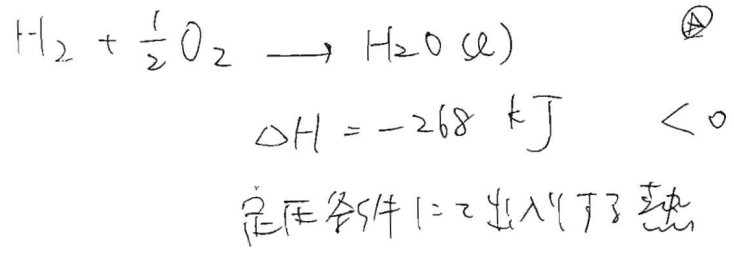 H₂ + 1/2 O₂ → H₂O (l) Ⓐ
ΔH = -268 kJ < 0
定圧条件にて出入りする熱